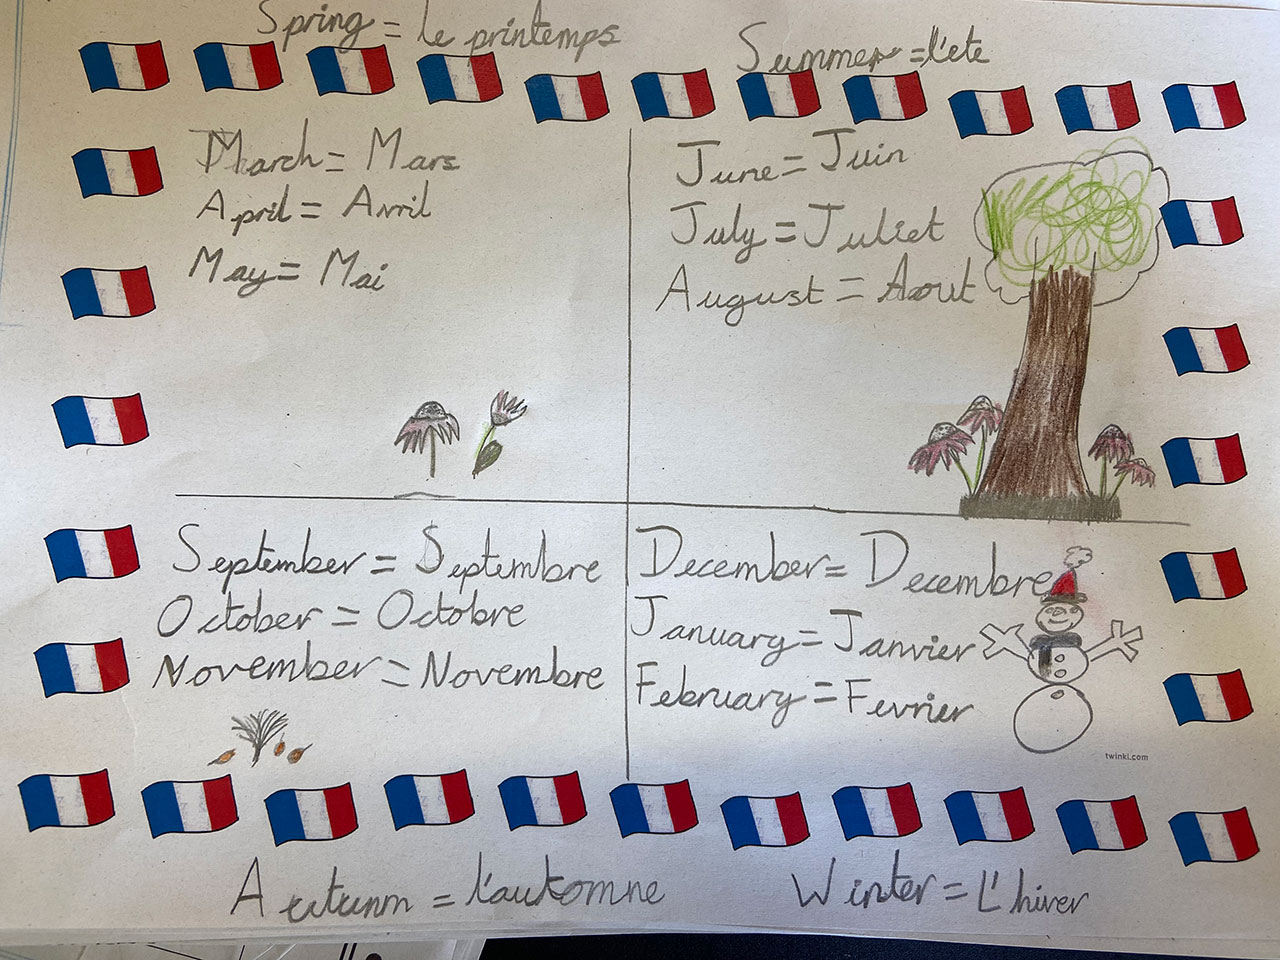 Spring = le printemps
Summer = l'ete
March = Mars
April = Avril
May = Mai
June = Juin
July = Juliet
August = Aout
September = Septembre
October = Octobre
November = Novembre
December = Decembre
January = Janvier
February = Fevrier
twinkl.com
Autunm = l'automne
Winter = L'hiver